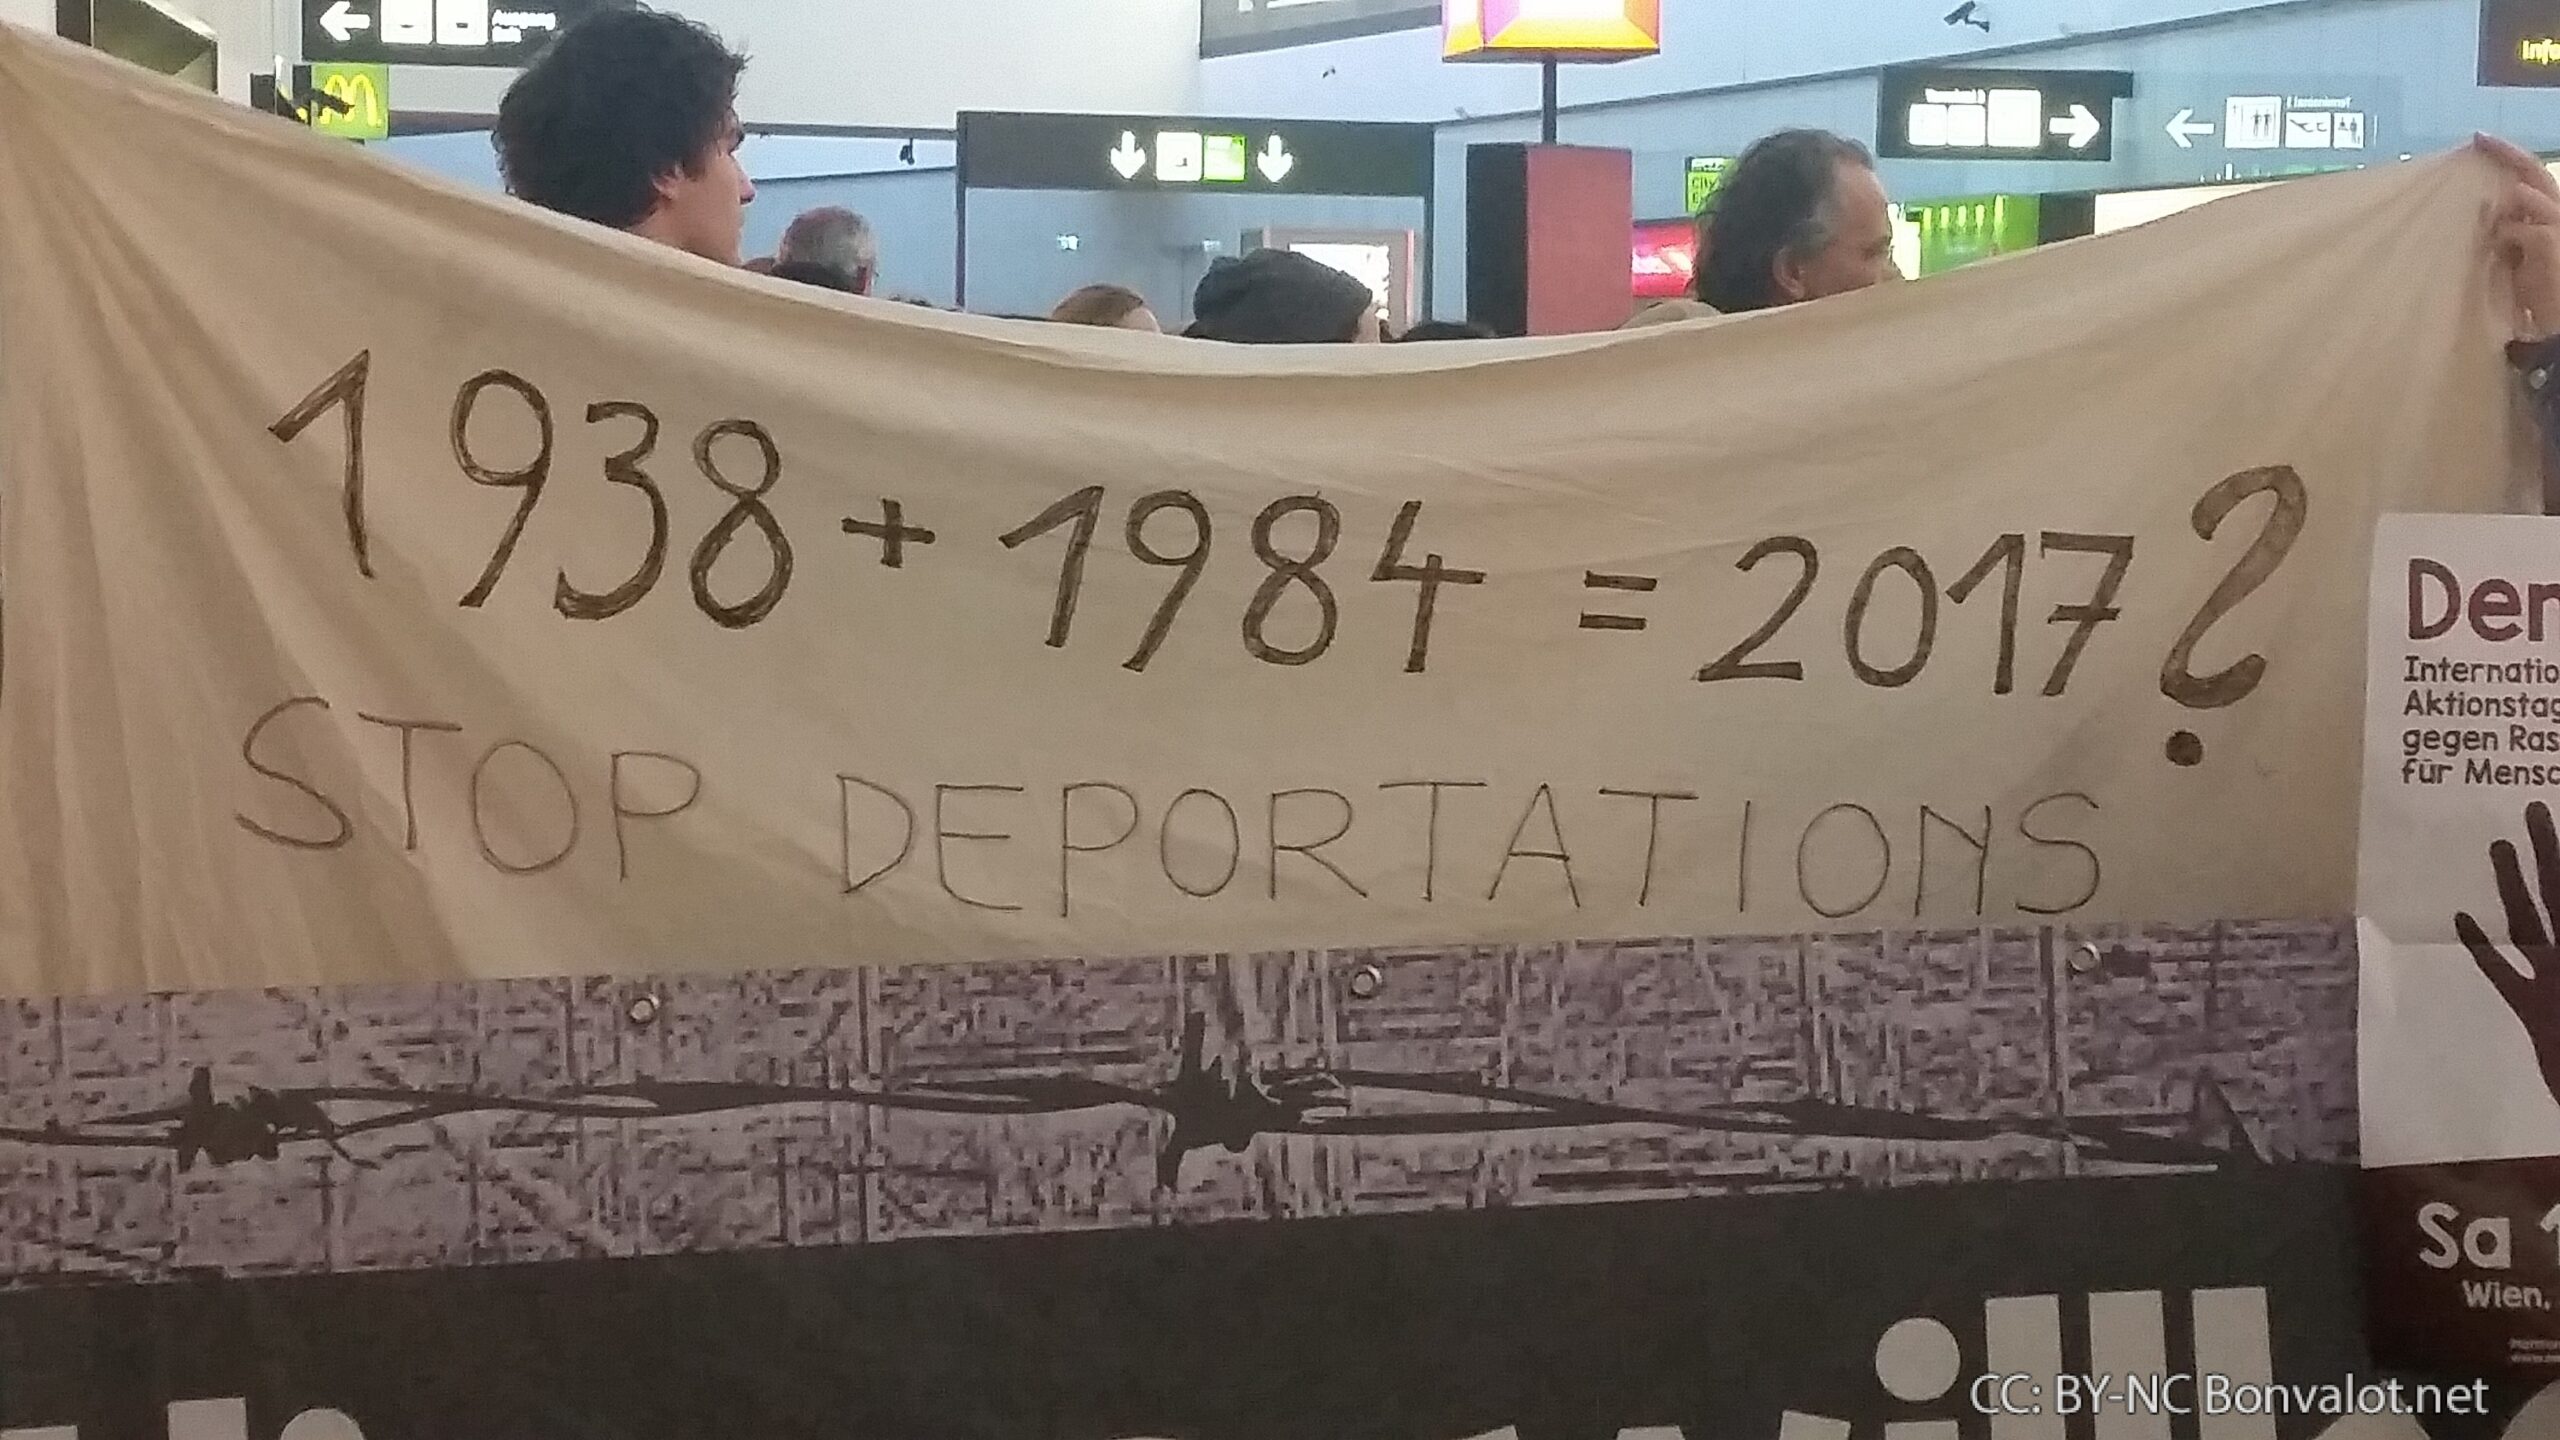 Ausgang
Info
1938 + 1984 = 2017?
STOP DEPORTATIONS
Internatio
Aktionstag
gegen Ras
für Mensc
Sa 1
Wien,
CC: BY-NC Bonvalot.net